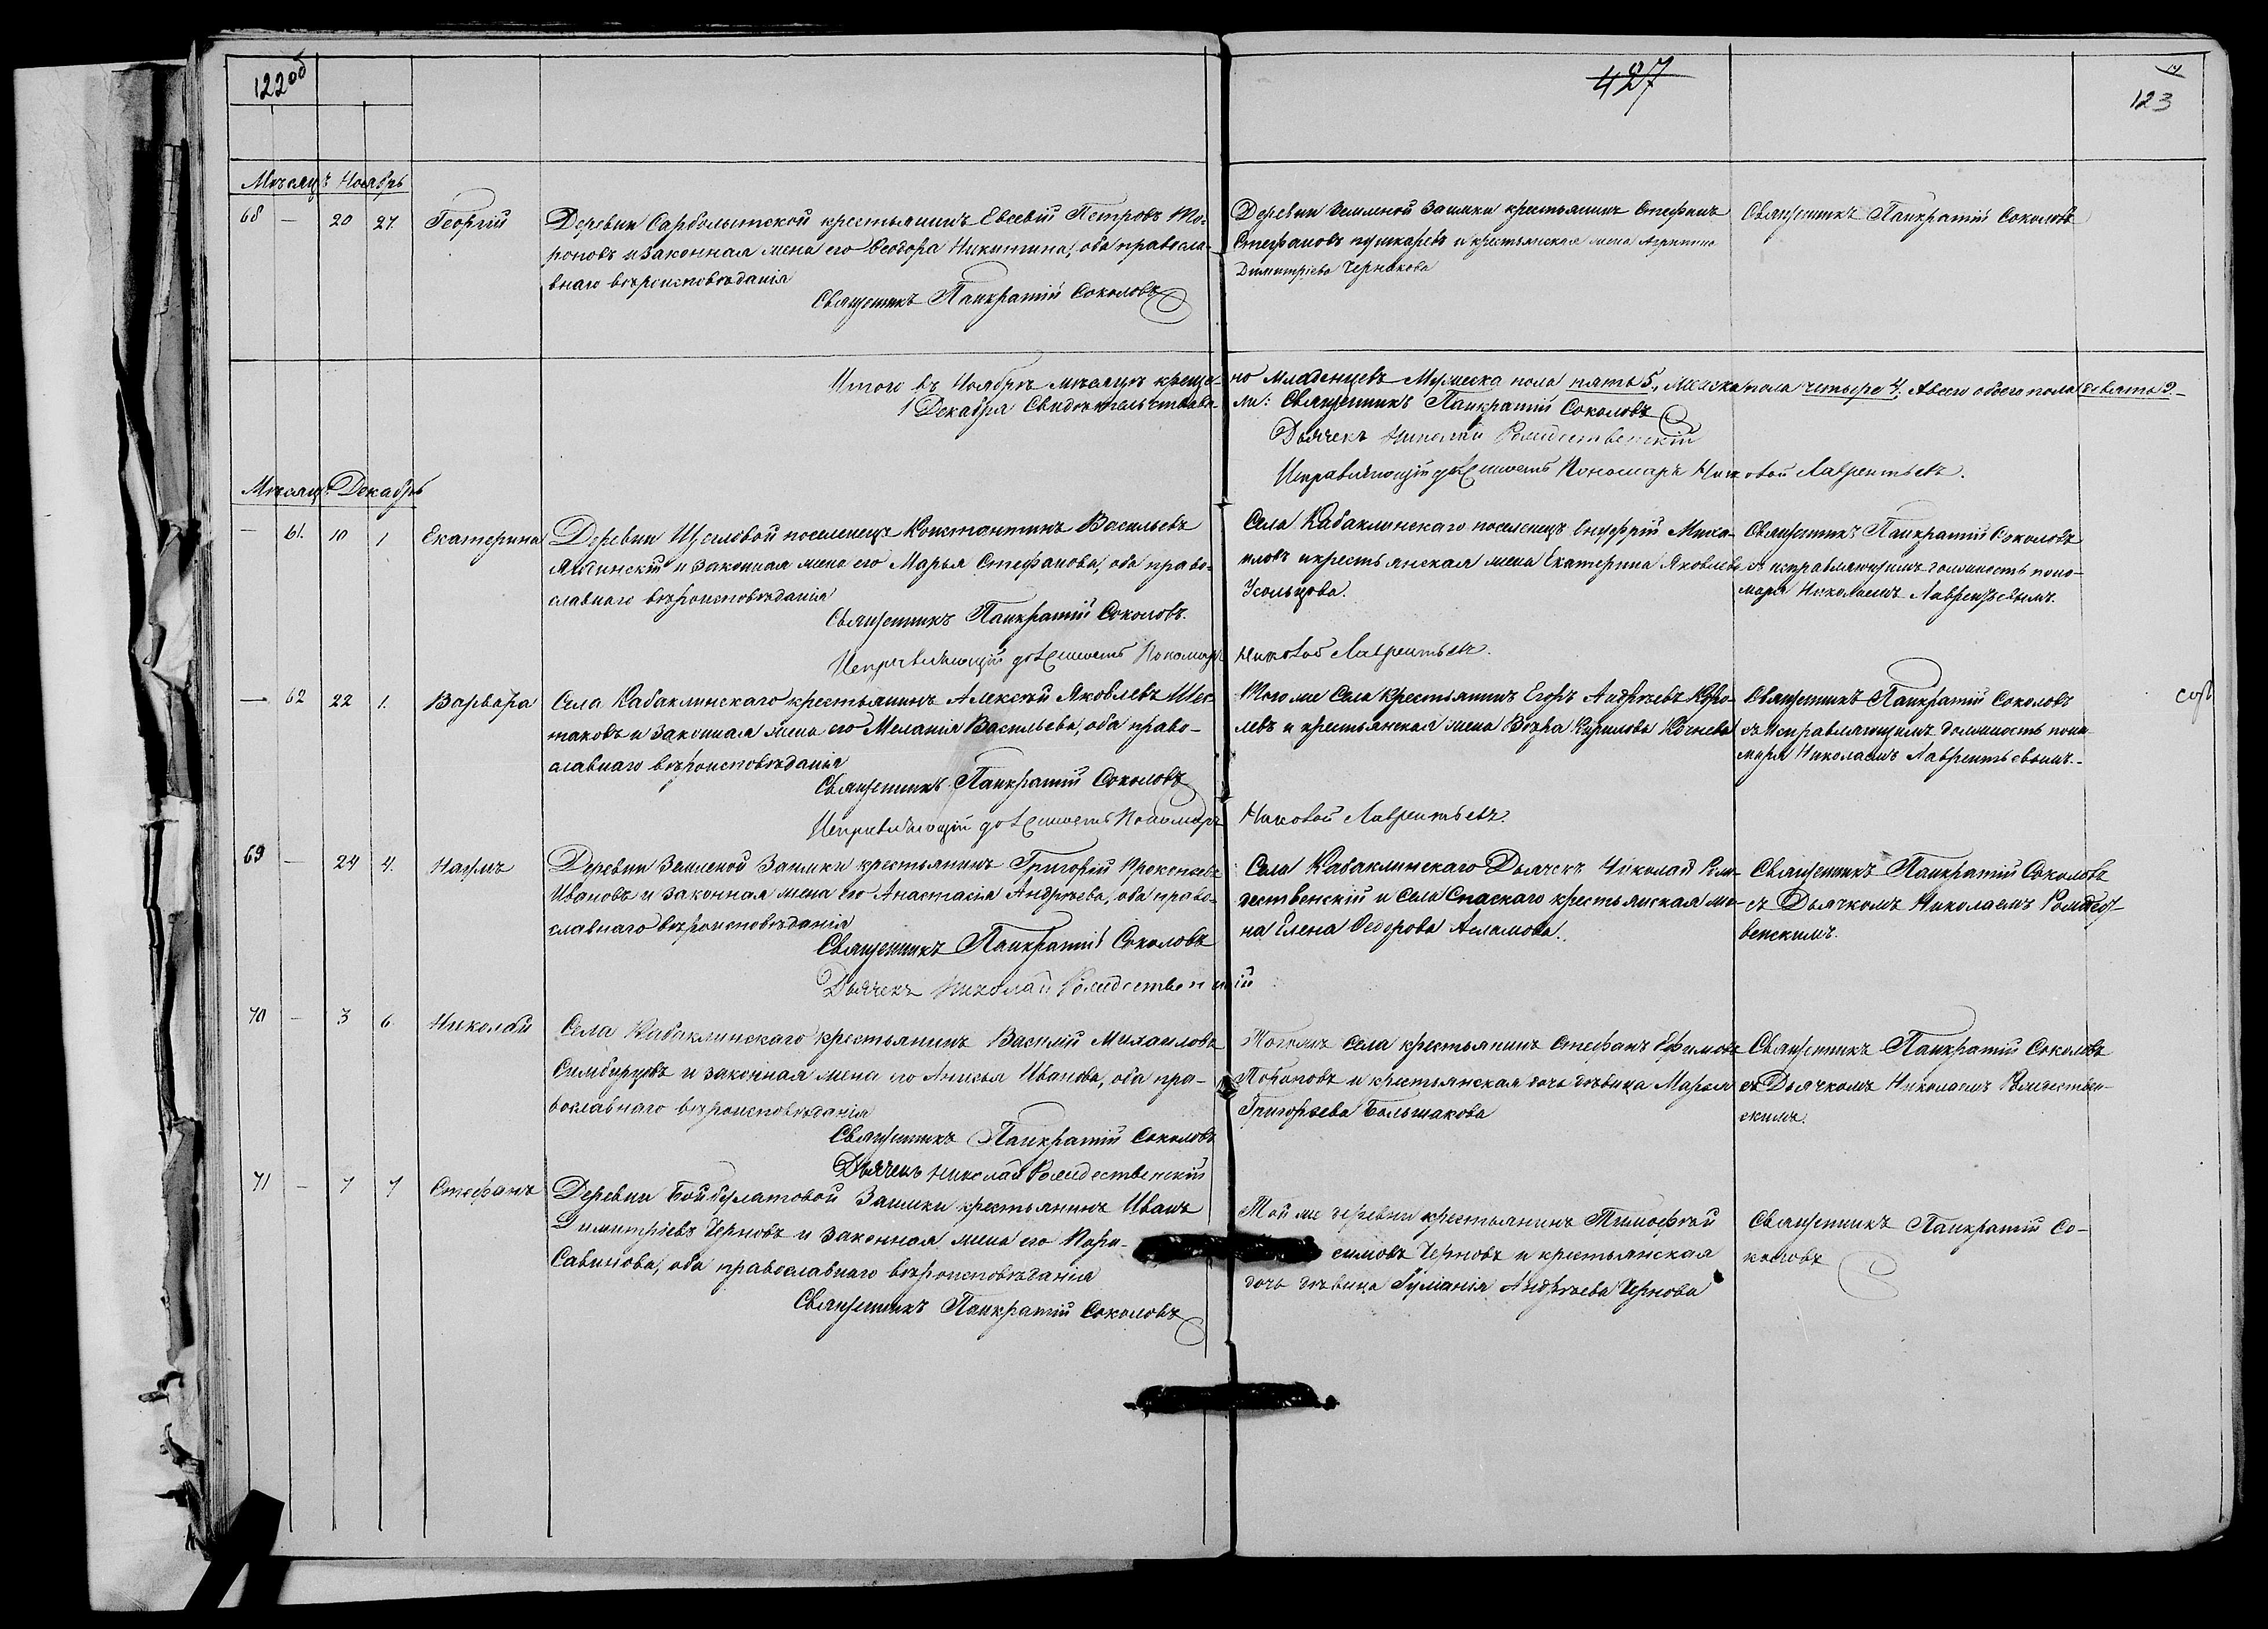 122об
427
123
Мѣсяцъ Ноябрь
68 — 20 27. Георгій
Деревни Сарбалыкской крестьянинъ Евсевій Петровъ
и законная жена его Ѳеодора Никитина, оба правосла-
внаго вѣроисповѣданія
Священникъ Панкратій Соколовъ
Деревни Земленой Заимки крестьянинъ Стефанъ
Стефановъ Пушкаревъ и крестьянская жена Агрипина
Димитріева Чернакова
Священникъ Панкратій Соколовъ
Итого въ Ноябрѣ мѣсяцѣ креще-
но младенцевъ Мужеска пола пять 5, Женска пола четыре 4, А всего обоего пола девять 9.
1 Декабря Свидѣтельствова-
ли: Священникъ Панкратій Соколовъ
Дьячекъ Николай Рождественскій
Исправляющій должность Пономаря Николай Лаврентьевъ.
Мѣсяцъ Декабрь
— 61. 10 1 Екатерина
Деревни Щегловой поселенецъ Константинъ Васильевъ
и законная жена его Марья Стефанова, оба право-
славнаго вѣроисповѣданія
Священникъ Панкратій Соколовъ.
Исправляющій должность Пономаря
Села Кабаклинскаго поселенецъ Онуфрій Миха-
иловъ и крестьянская жена Екатерина Яковлева
Усольцова.
Николай Лаврентьевъ.
Священникъ Панкратій Соколовъ
съ исправляющимъ должность поно-
маря Николаемъ Лаврентьевымъ.
— 62 22 1. Варвара
Села Кабаклинскаго крестьянинъ Алексѣй Яковлевъ Шес-
таковъ и законная жена его Меланія Васильева, оба право-
славнаго вѣроисповѣданія
Священникъ Панкратій Соколовъ
Исправляющій должность Пономаря
Того же Села крестьянинъ Егоръ Андреевъ Коро-
левъ и крестьянская жена Кирилова Кочнева
Николай Лаврентьевъ.
Священникъ Панкратій Соколовъ
съ Исправляющимъ должность поно-
маря Николаемъ Лаврентьевымъ.
69 — 24 4. Наумъ
Деревни Земленой Заимки крестьянинъ Григорій Прокопьевъ
Ивановъ и законная жена его Анастасія Андреева, оба право-
славнаго вѣроисповѣданія
Священникъ Панкратій Соколовъ
Дьячекъ Николай Рождественскій
Села Кабаклинскаго Дьячекъ Николай Рож-
дественскій и Села Спаскаго крестьянская же-
на Елена Ѳедорова Асламова.
Священникъ Панкратій Соколовъ
съ Дьячкомъ Николаемъ Рождест-
венскимъ.
70 — 3 6. Николай
Села Кабаклинскаго крестьянинъ Василій Михаиловъ
Симбирцовъ и законная жена его Анисья Иванова, оба пра-
вославнаго вѣроисповѣданія
Священникъ Панкратій Соколовъ
Дьячекъ Николай Рождественскій
Тогожъ села крестьянинъ Стефанъ Ефимовъ
и крестьянская дочь дѣвица Марья
Григорьева Большакова
Священникъ Панкратій Соколовъ
съ Дьячкомъ Николаемъ Рождествен-
скимъ.
71 — 7 7 Стефанъ
Деревни Байбулатовой Заимки крестьянинъ Иванъ
Димитріевъ Черновъ и законная жена его
Савинова, оба православнаго вѣроисповѣданія
Священникъ Панкратій Соколовъ
Той же деревни крестьянинъ Тимофѣй
симовъ Черновъ и крестьянская
дочь дѣвица Андреева Чернова
Священникъ Панкратій Со-
коловъ